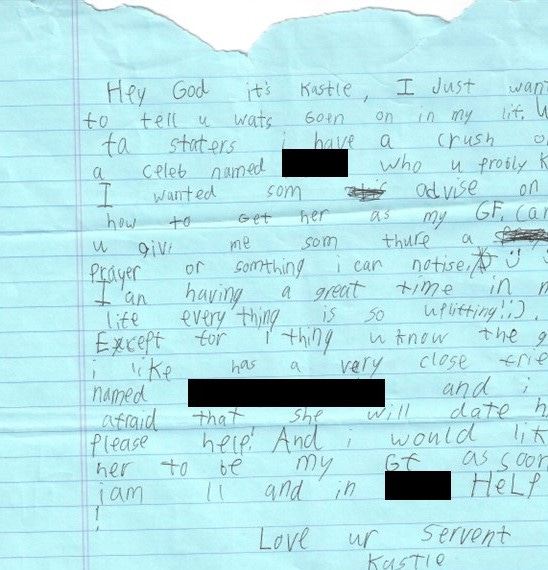 Hey God it's Kastle, I Just wan
to tell u wats Goen on in my lif. U
ta staters i have a crush o
a celeb named who u probly k
I wanted som advise on
how to Get her as my GF. Can
u give me som thure a
prayer or somthing i can notise.
I an having a great time in m
life every thing is so uplifting!;).
Except for 1 thing u know the g
i like has a very close frie
named and i
afraid that she will date h
please help! And i would lik
her to be my Gf as soon
i am 11 and in HeLP
!
Love ur Servent
Kastle